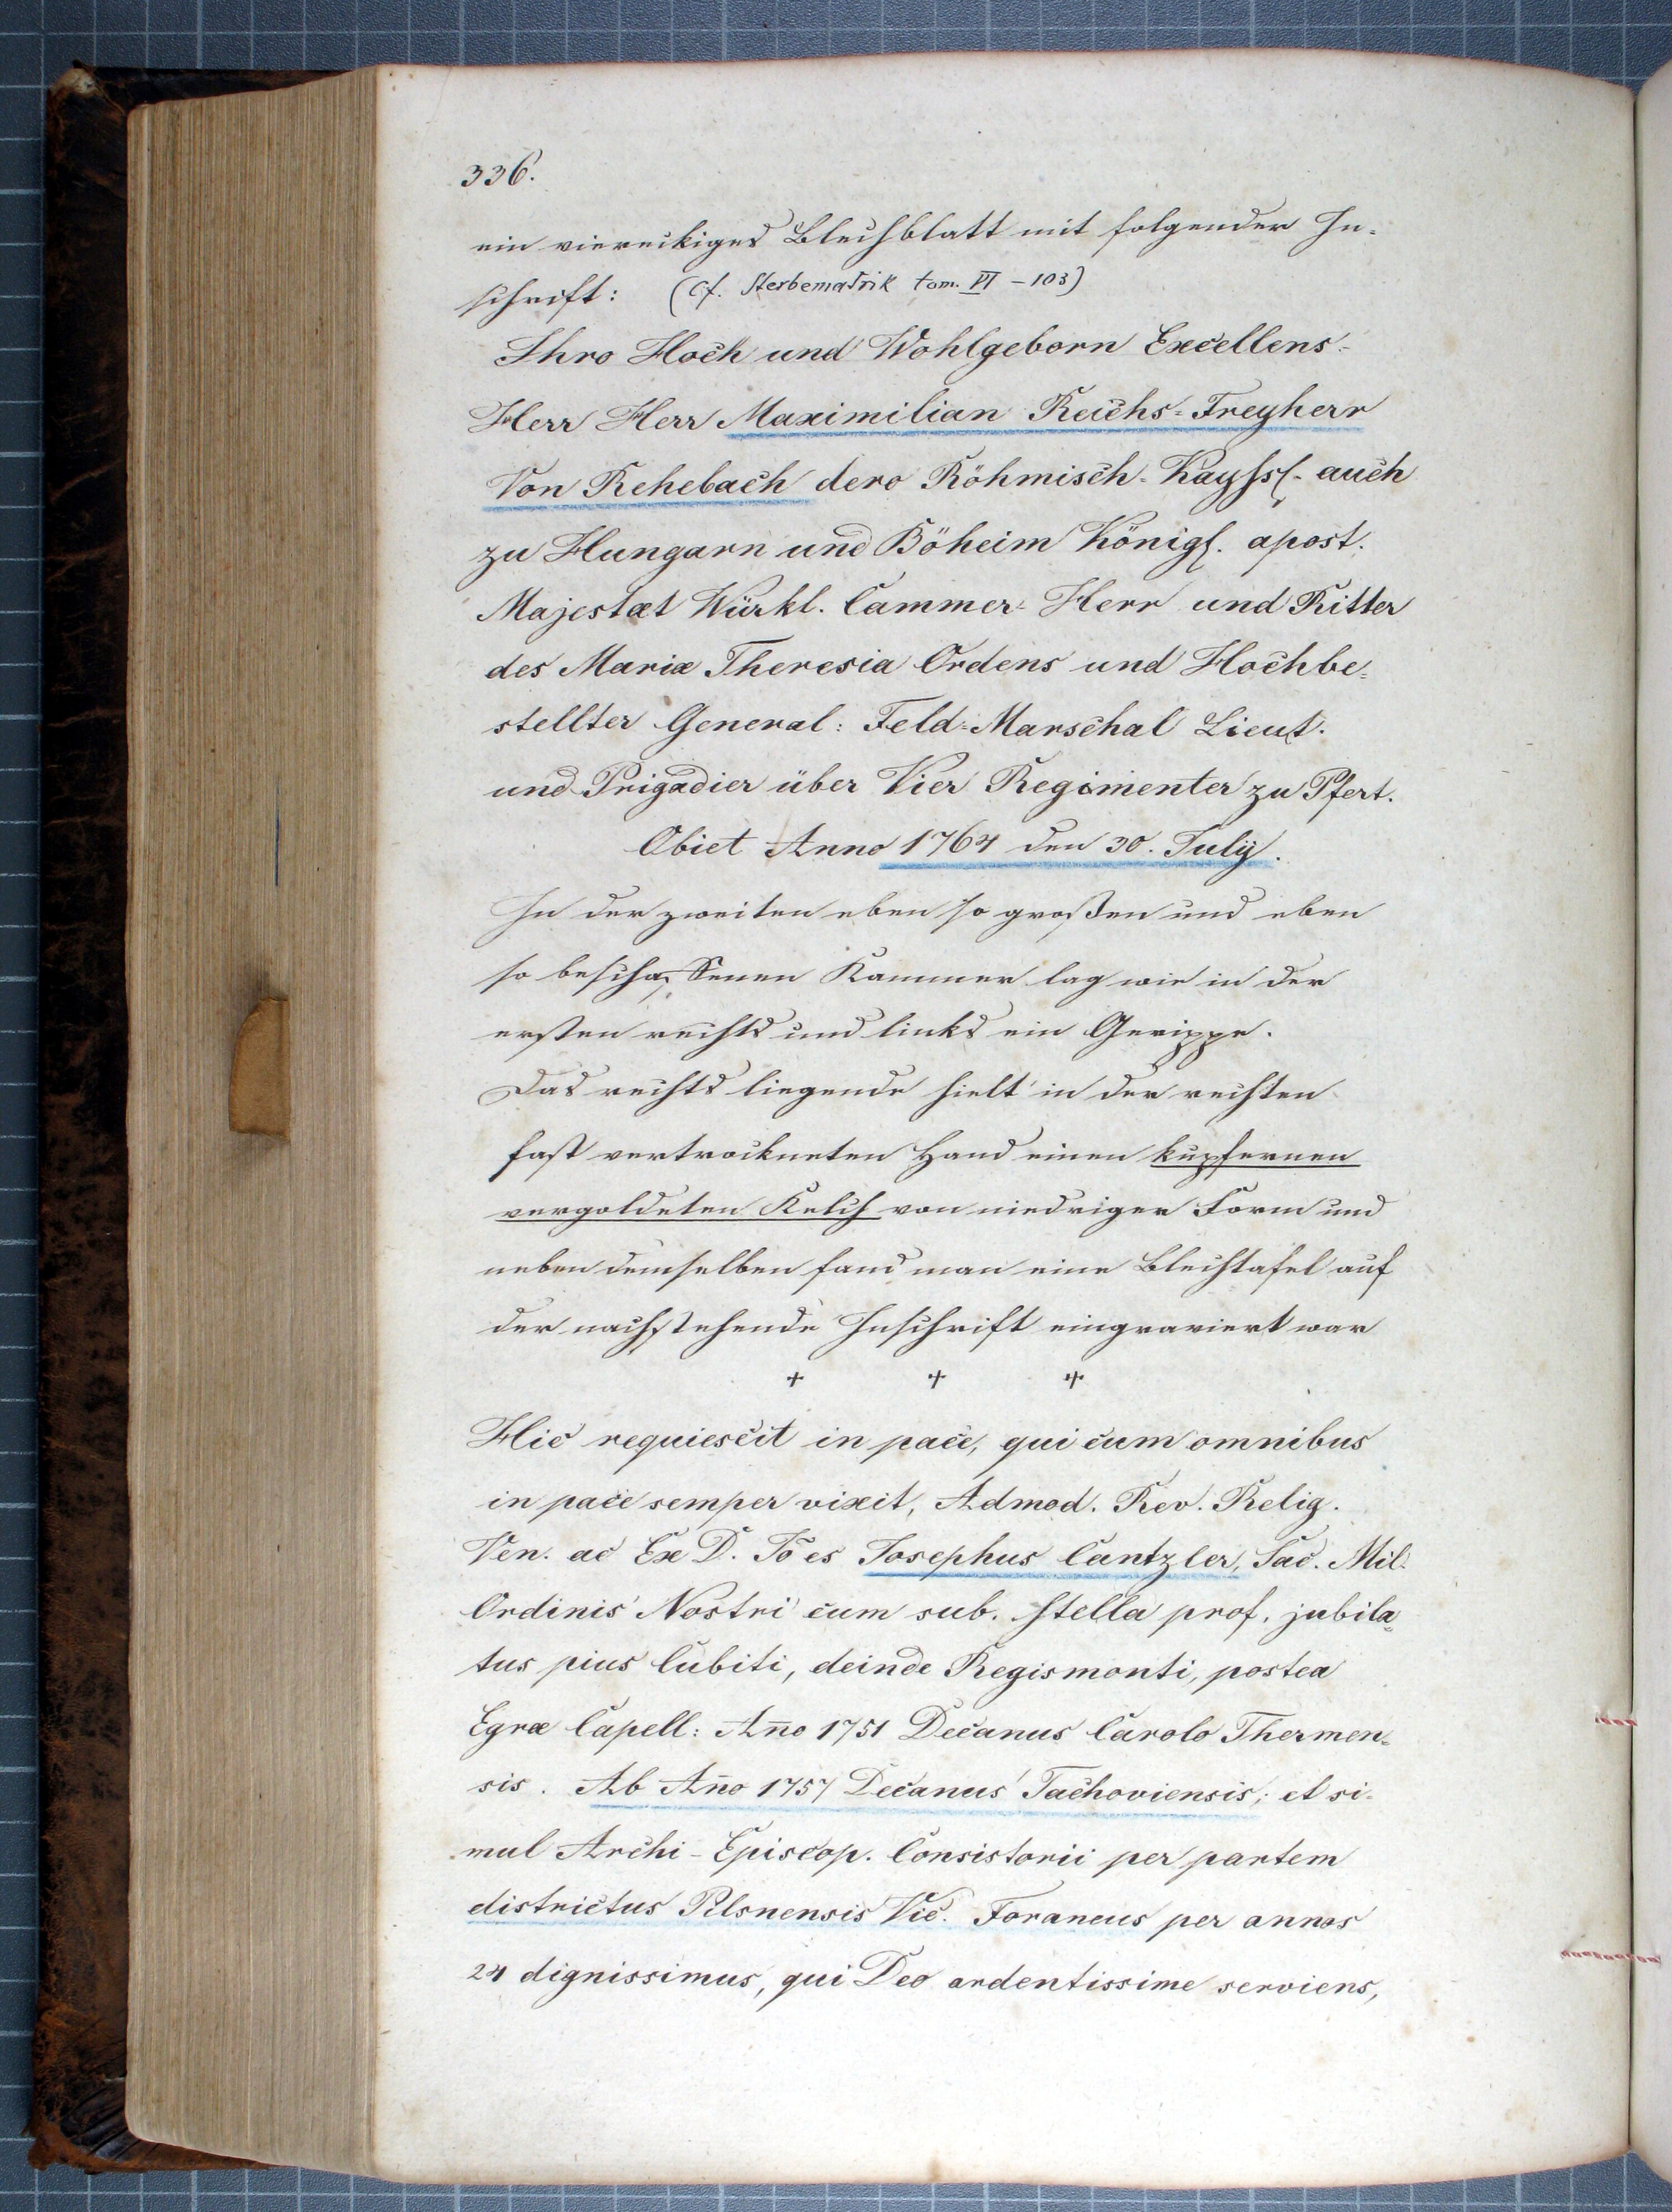 336.
ein viereckiges Blechblatt mit folgender In-
schrift: (cf. Sterbematrik tom. VI - 103)
Ihro Hoch und Wohlgeborn Excellens-
Herr Herr Maximilian Reichs-Freyherr
Von Rehebach dero Röhmisch-Kayßl. auch
zu Hungarn und Böheim Königl. apost.
Majestæt Würkl. Cammer-Herr und Ritter
des Mariæ Theresia Ordens und Hochbe-
stellter General: Feld-Marschal Lieut.
und Prigadier über Vier Regimenter zu Pfert.
Obiet Anno 1764 den 30. Julÿ.
In der zweiten eben so großen und eben
so beschaffenen Kammer lag wie in der
ersten rechts und links ein Gerippe.
Das rechts liegende hielt in der rechten
fast vertrockneten Hand einen kupfernen
vergoldeten Kelch von niedriger Form und
neben demselben fand man eine Blechtafel auf
der nachstehende Inschrift eingraviert war
+ + +
Hic requiescit in pace, qui cum omnibus
in pace semper vixit, Admod. Rev. Relig.
Ven. ac Ex D. Jo͞es Josephus Cantzler, Sac. Mil.
Ordinis Nostri cum sub. Stella prof. jubila-
tus pius Cubiti, deinde Regismonti, postea
Egræ Capell: An̄o 1751 Decanus Carolo Thermen-
sis. Ab An̄o 1757 Decanus Tachoviensis; et si-
mul Archi-Episcop. Consistorii per partem
districtus Pilsnensis Vic. Foraneus per annos
24 dignissimus, qui Deo ardentissime serviens,